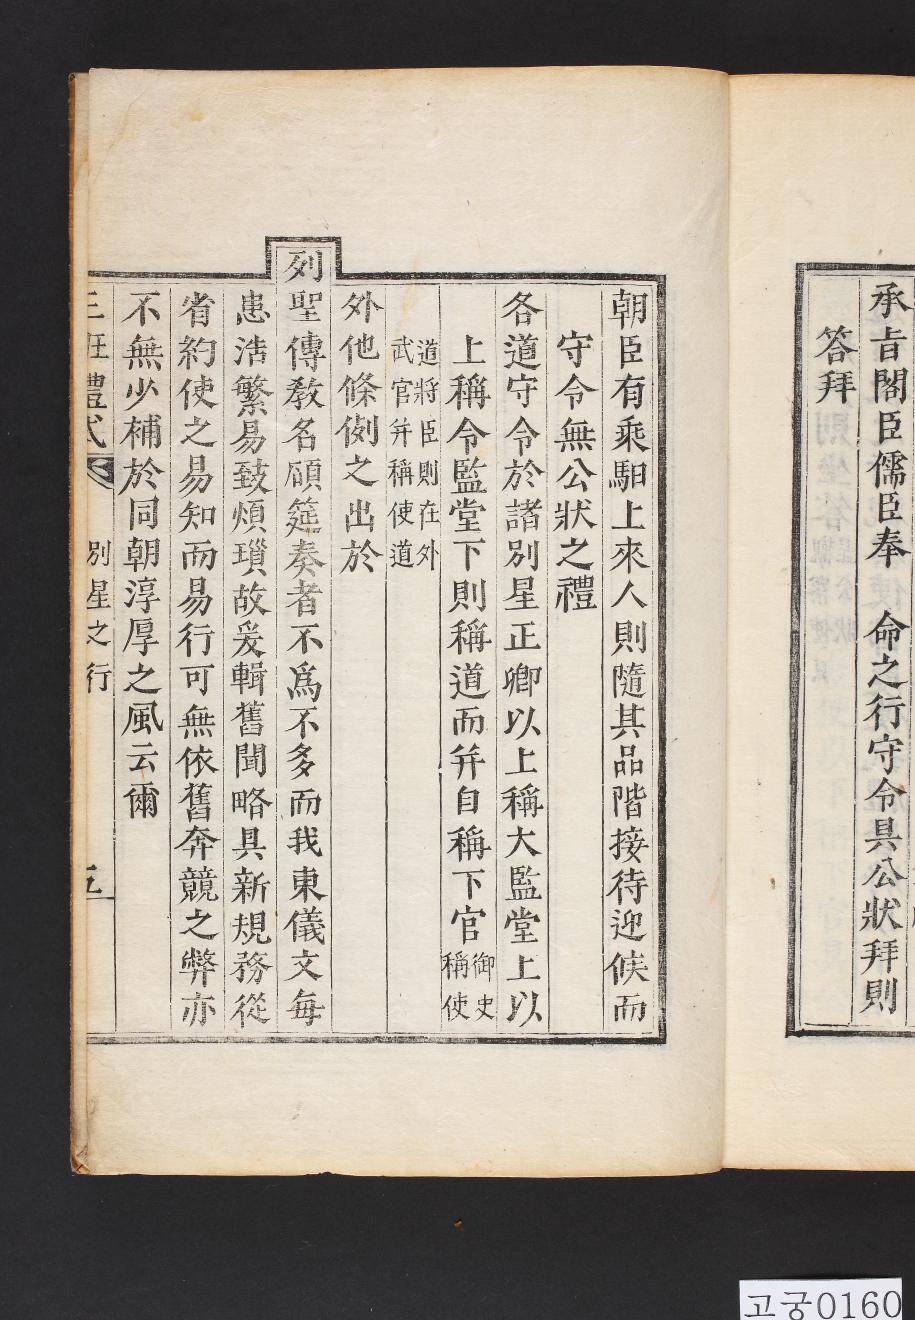 承旨閣臣儒臣奉 命之行守令具公狀拜則
答拜
朝臣有乘馹上來人則隨其品階接待迎候而
守令無公狀之禮
各道守令於諸別星正卿以上稱大監堂上以
上稱令監堂下則稱道而幷自稱下官御史
稱使
道將臣則在外
武官幷稱使道
外他條例之出於
列聖傳敎名碩筵奏者不爲不多而我東儀文每
患浩繁易致煩瑣故爰輯舊聞略具新規務從
省約使之易知而易行可無依舊奔競之弊亦
不無少補於同朝淳厚之風云爾
三班禮式 別星之行 五
고궁0160